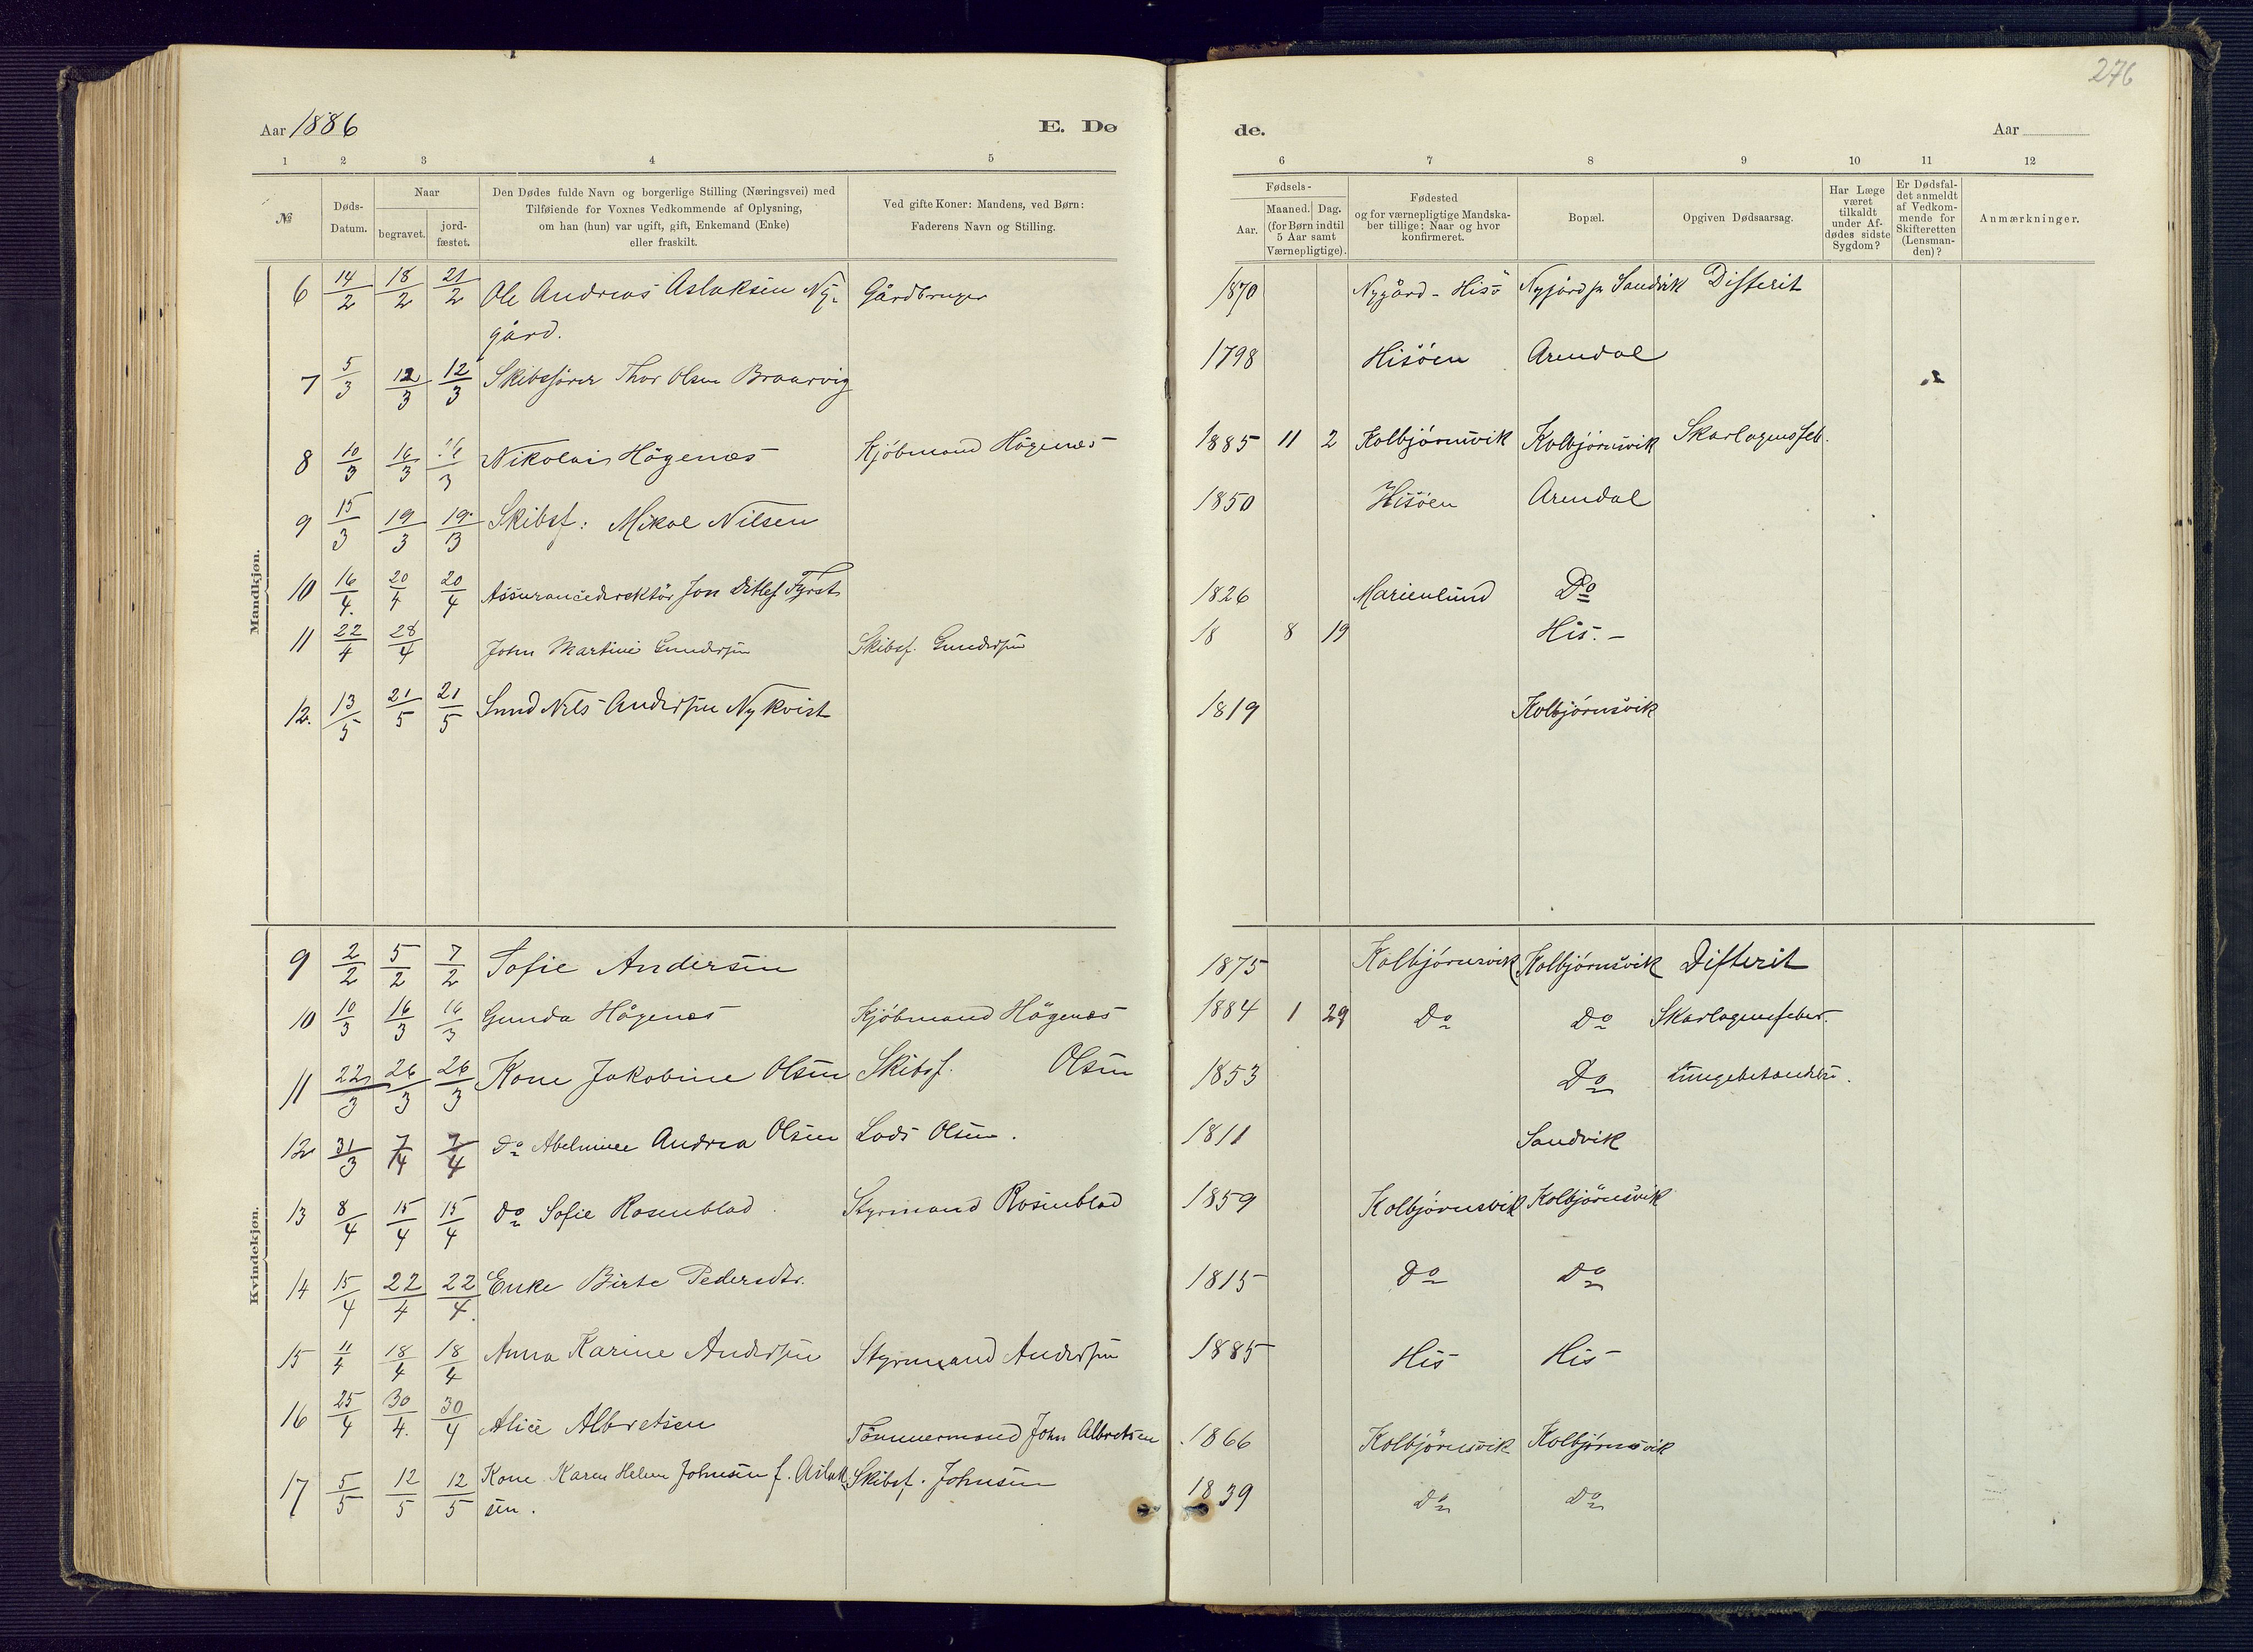 276
Aar 1886 E. Dø de. Aar
1 2 3 4 5 6 7 8 9 10 11 12
№
Døds-
Datum.
Naar
begravet.
jord-
fæstet.
Den Dødes fulde Navn og borgerlige Stilling (Næringsvei) med
Tilføiende for Voxnes Vedkommende af Oplysning,
om han (hun) var ugift, gift, Enkemand (Enke)
eller fraskilt.
Ved gifte Koner: Mandens, ved Børn:
Faderens Navn og Stilling.
Fødsels-
Aar.
Maaned. Dag.
(for Børn indtil
5 Aar samt
Værnepligtige).
Fødested
og for værnepligtige Mandska-
ber tillige: Naar og hvor
konfirmeret.
Bopæl.
Opgiven Dødsaarsag.
Har Læge
været
tilkaldt
under Af-
dødes sidste
Sygdom?
Er Dødsfal-
det anmeldt
af Vedkom-
mende for
Skifteretten
(Lensman-
den)?
Anmærkninger.
Mandkjøn.
6 14/2 18/2 21/2 Ole Andreas Aslaksen Ny- Gårdbruger 1870 Nygård - Hisö Nygård pr Sandvik Difterit
gård.
7 5/3 12/3 12/3 Skibsfører Thor Olsen Braarvig 1798 Hisöen Arendal
8 10/3 16/3 16/3 Nikolais Hågenæs Kjöbmand Hågenæs 1885 11 2 Kolbjörnsvik Kolbjörnsvik Skarlagensfeb.
9 15/3 19/3 19/3 Skibsf: Mikal Nilsen 1850 Hisöen Arendal
10 16/4. 20/4 20/4 Assurancedirektör Jon Ditlef Fürst 1826 Marienlund Do
11 22/4 28/4 John Martini Gundersen Skibsf. Gundersen 18 8 19 His. -
12. 13/5 21/5 21/5 Nils Andersen Nykvist 1819 Kolbjörnsvik
Kvindekjøn.
9 2/2 5/2 7/2 Sofie Andersen 1875 Kolbjörnsvik Kolbjörnsvik Difterit
10 10/3 16/3 16/3 Gunda Hågenæs Kjöbmand Hågenæs 1884 1 29 Do Do Skarlagensfeber.
11 22/3 26/3 26/3 Kone Jakobine Olsen Skibsf. Olsen 1853 Do Lungebetændelse.
12 31/3 7/4 7/4 Do Andrea Olsen Lods Olsen. 1811 Sandvik
13 8/4 15/4 15/4 Do Sofie Rosenblad. Styrmand Rosenblad 1859 Kolbjörnsvik Kolbjörnsvik
14 15/4 22/4 22/4. Enke Birte Pedersdtr. 1815 Do Do
15 11/4 18/4 18/4 Anna Karine Andersen Styrmand Andersen 1885 His His
16 25/4 30/4. 30/4 Alice Albretsen Tömmermand John Albretsen 1866 Kolbjörnsvik Kolbjörnsvik
17 5/5 12/5 12/5 Kone Karen Helene Johnsen f. Aslak- Skibsf. Johnsen 1839 Do Do
sen.